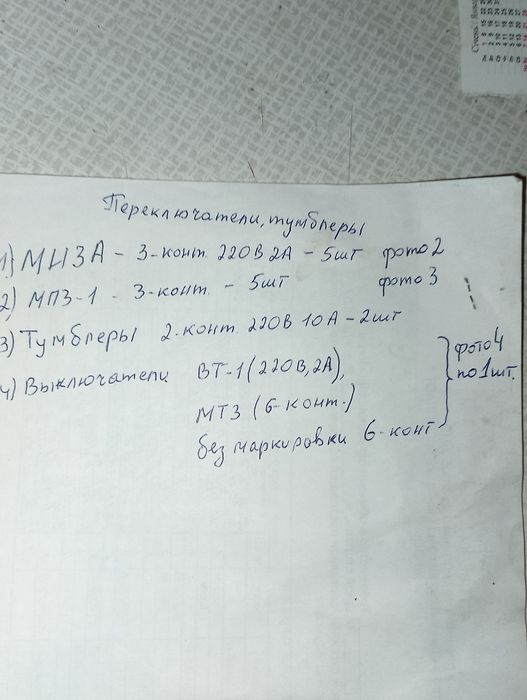 Переключатели, тумблеры
1) МИ3А - 3-конт. 220В 2А - 5шт фото 2
2) МП3-1 - 3-конт. - 5шт фото 3
3) Тумблеры 2-конт. 220В 10А - 2шт
4) Выключатели ВТ-1 (220В, 2А),
МТ3 (6-конт.)
без маркировки 6-конт
фото 4
по 1шт.